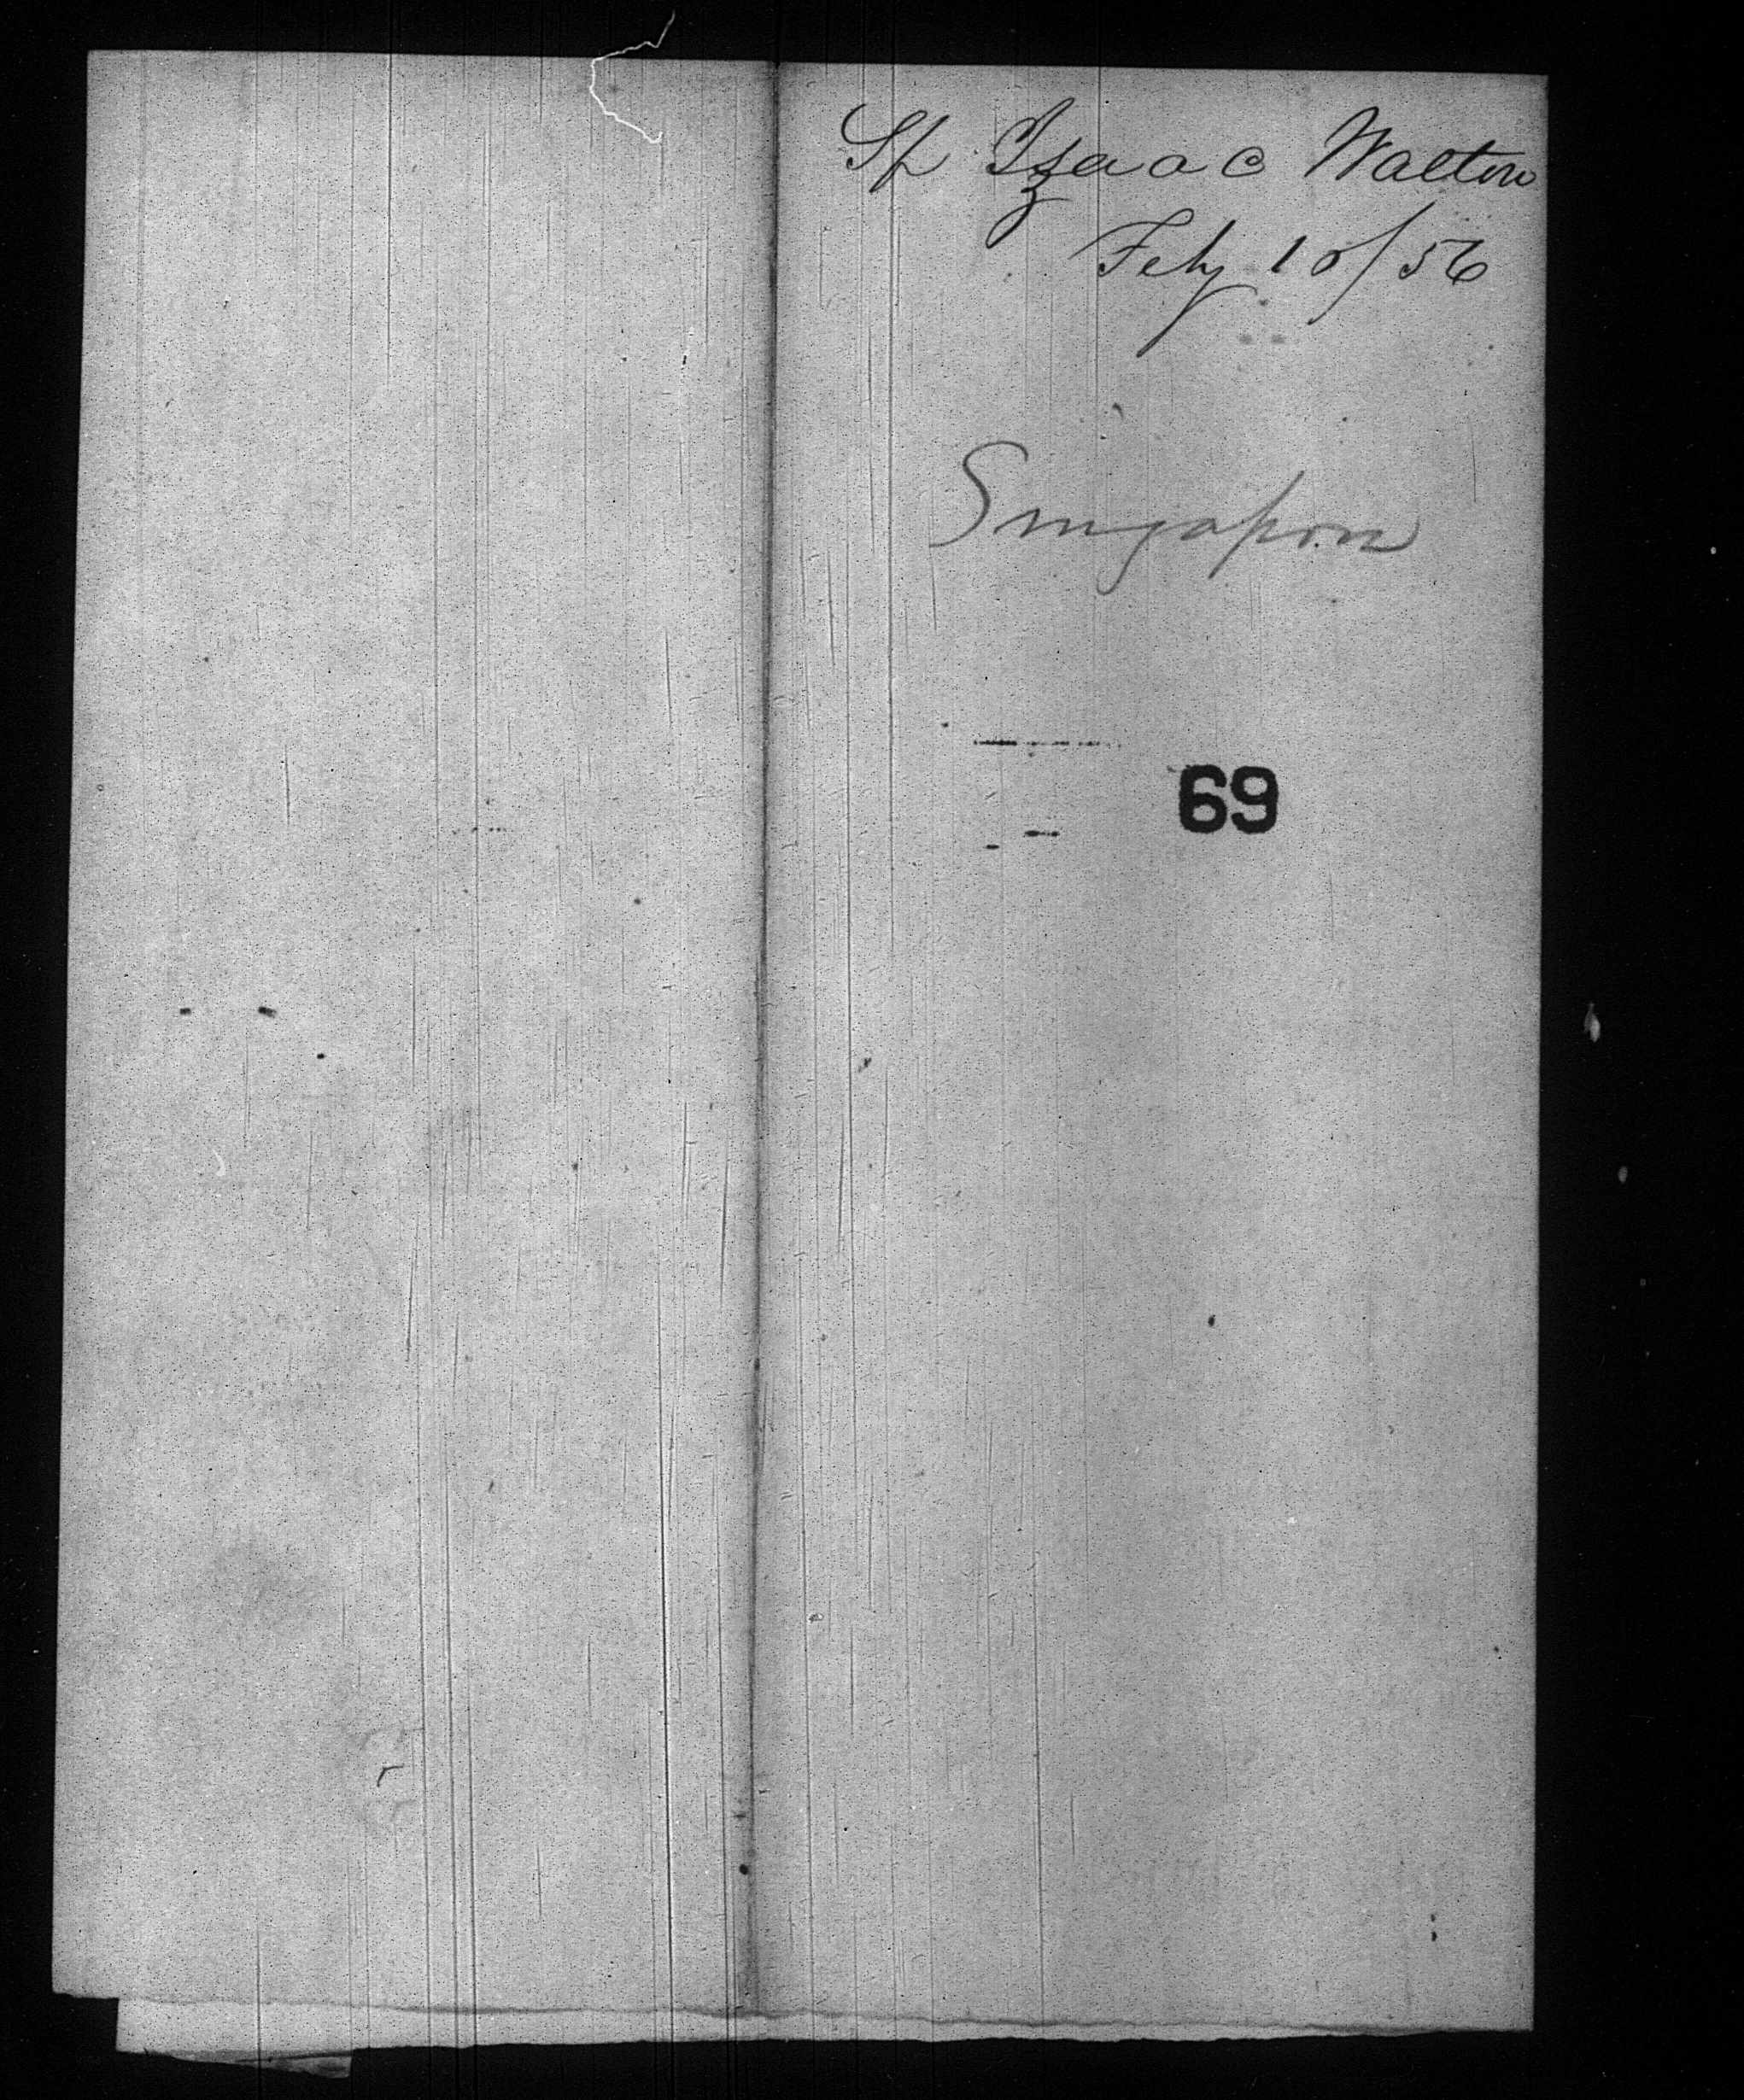 Sh Izaac Walton
Feby 10/56
Singapore
69